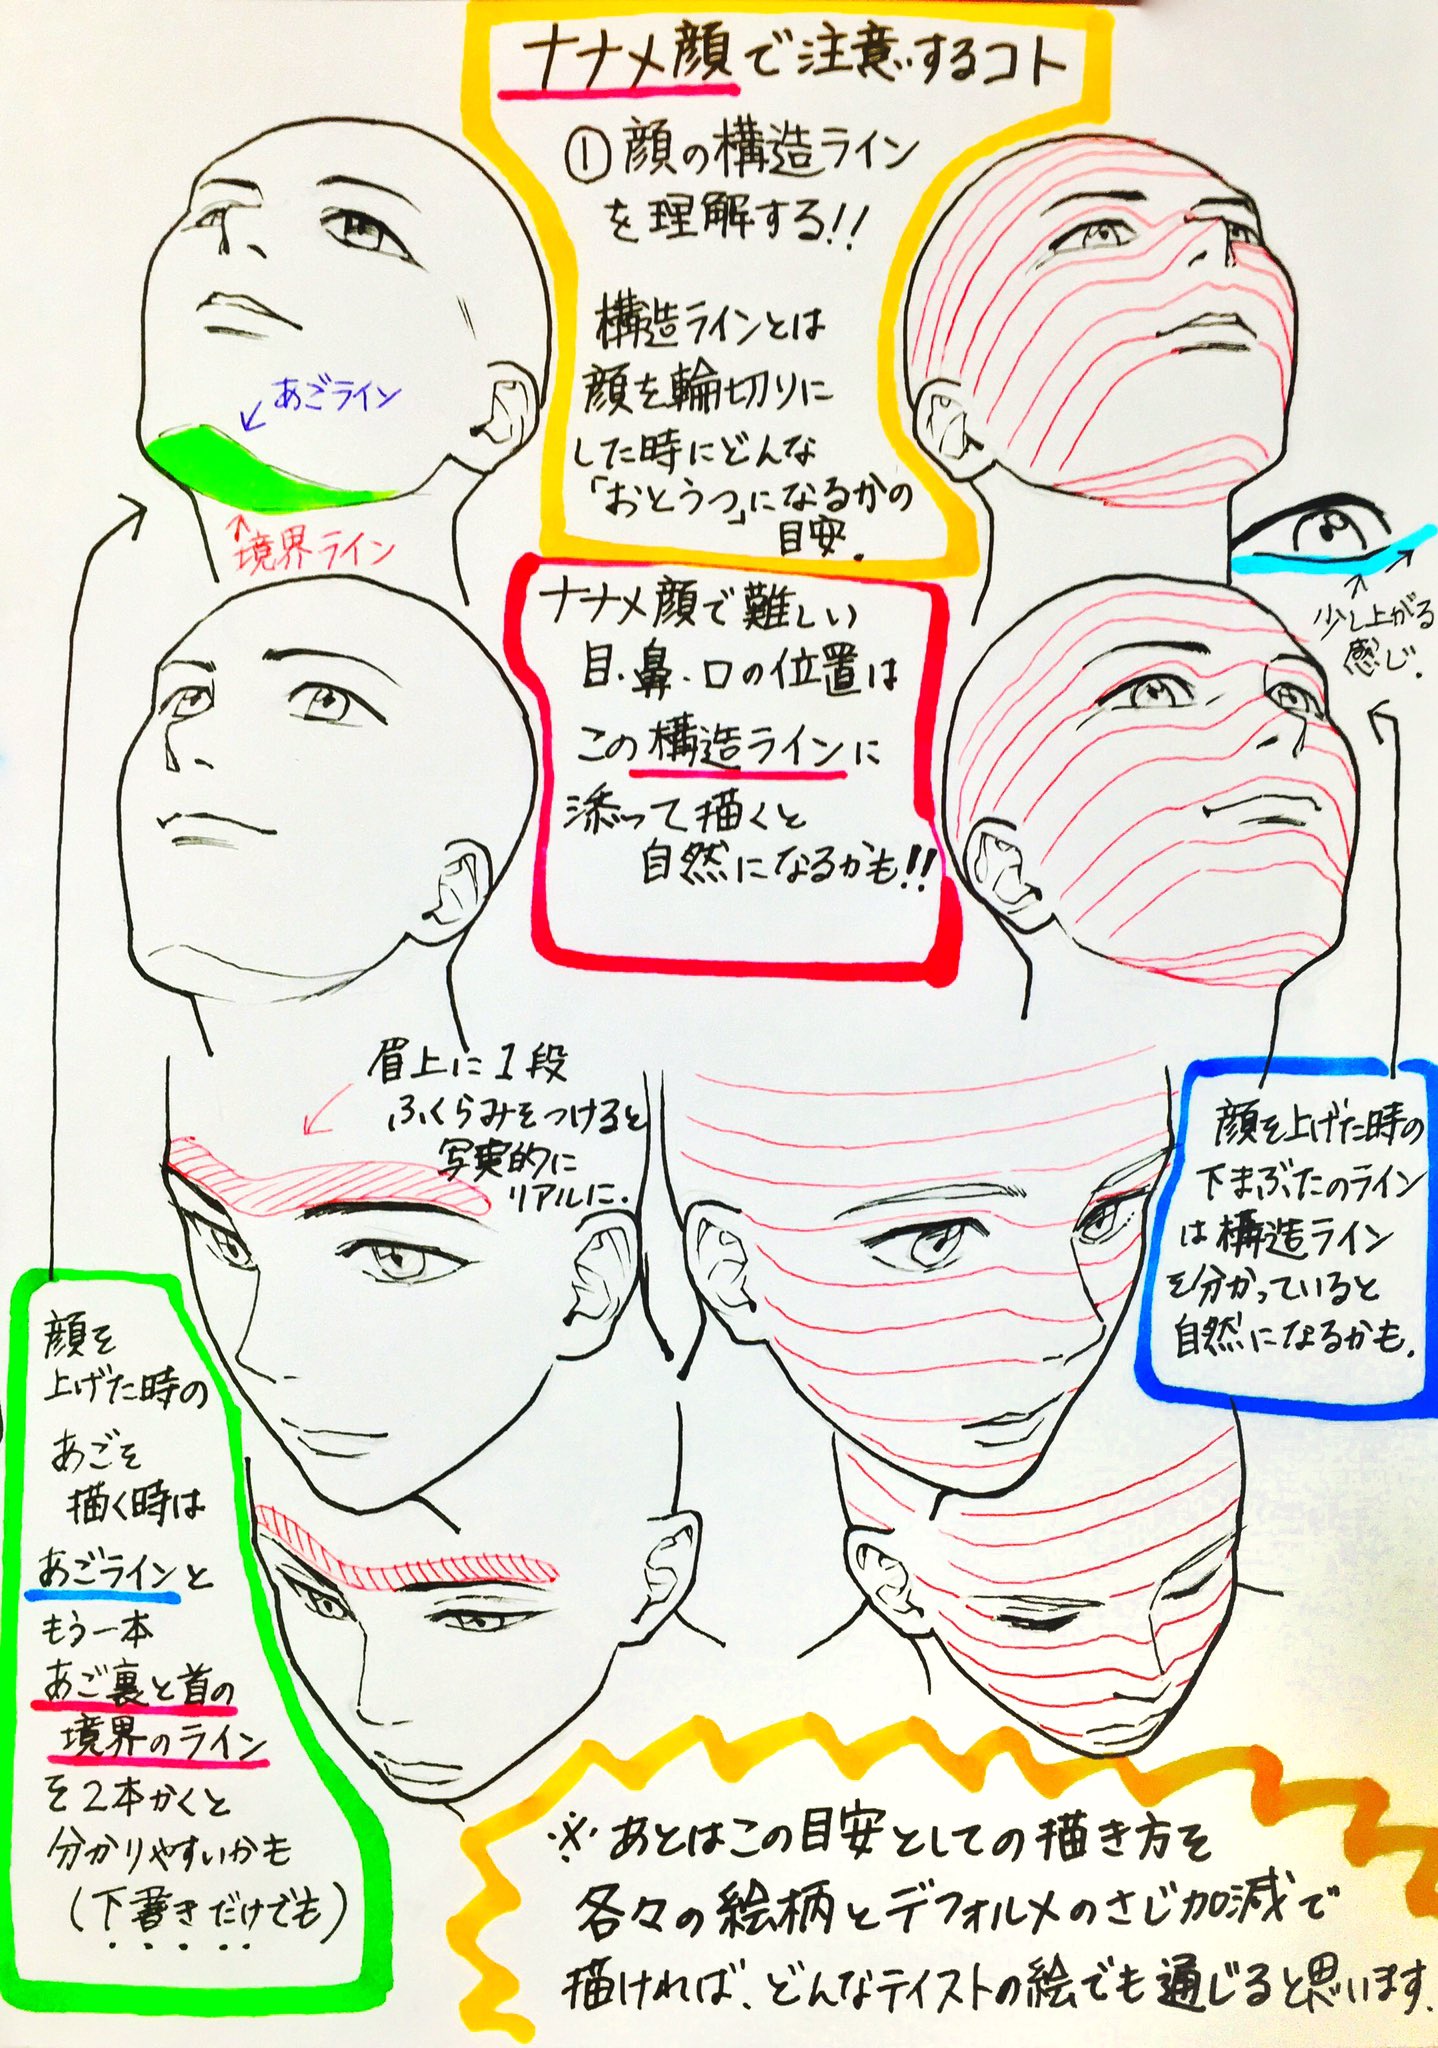 ナナメ顔で注意するコト
①顔の構造ライン
を理解する!!
構造ラインとは
顔を輪切りに
した時にどんな
「おとうつ」になるかの
目安.
あごライン
境界ライン
ナナメ顔で難しい
目・鼻・口の位置は
この構造ラインに
添って描くと
自然になるかも!!
少し上がる
感じ.
眉上に1段
ふくらみをつけると
写実的に
リアルに.
顔を上げた時の
下まぶたのライン
は構造ライン
を分かっていると
自然になるかも.
顔を
上げた時の
あごを
描く時は
あごラインと
もう一本
あご裏と首の
境界のライン
を2本かくと
分かりやすいかも
(下書きだけでも)
※あとはこの目安としての描き方を
各々の絵柄とデフォルメのさじ加減で
描ければ、どんなテイストの絵でも通じると思います.